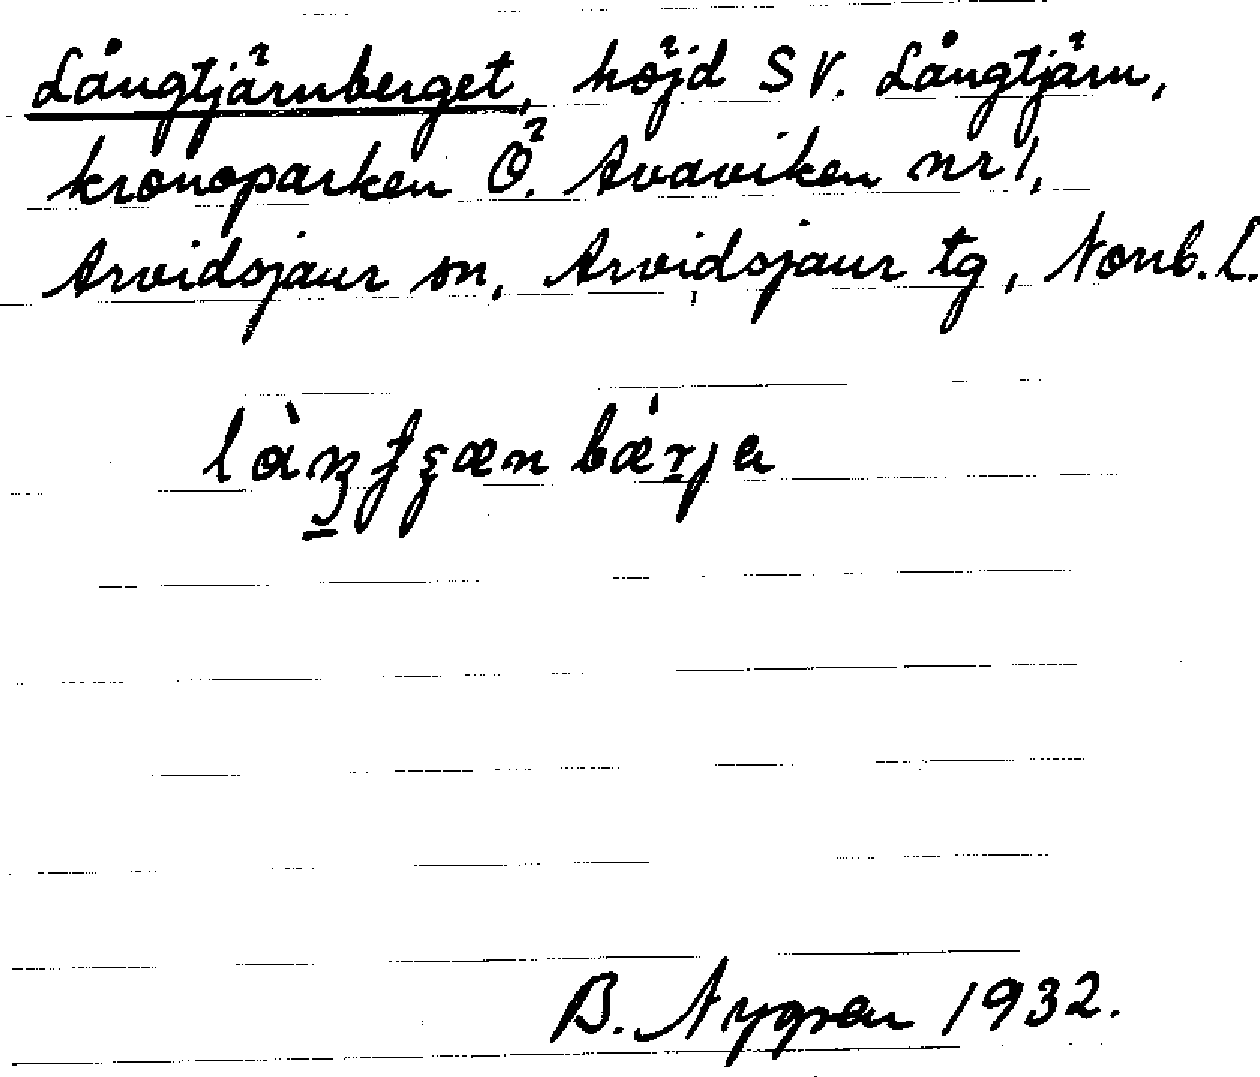 Långtjärnberget, höjd SV. Långtjärn,
kronoparken Ö. Avaviken nr 1,
Arvidsjaur sn, Arvidsjaur tg, Norrb. L.
B. Nygren 1932.